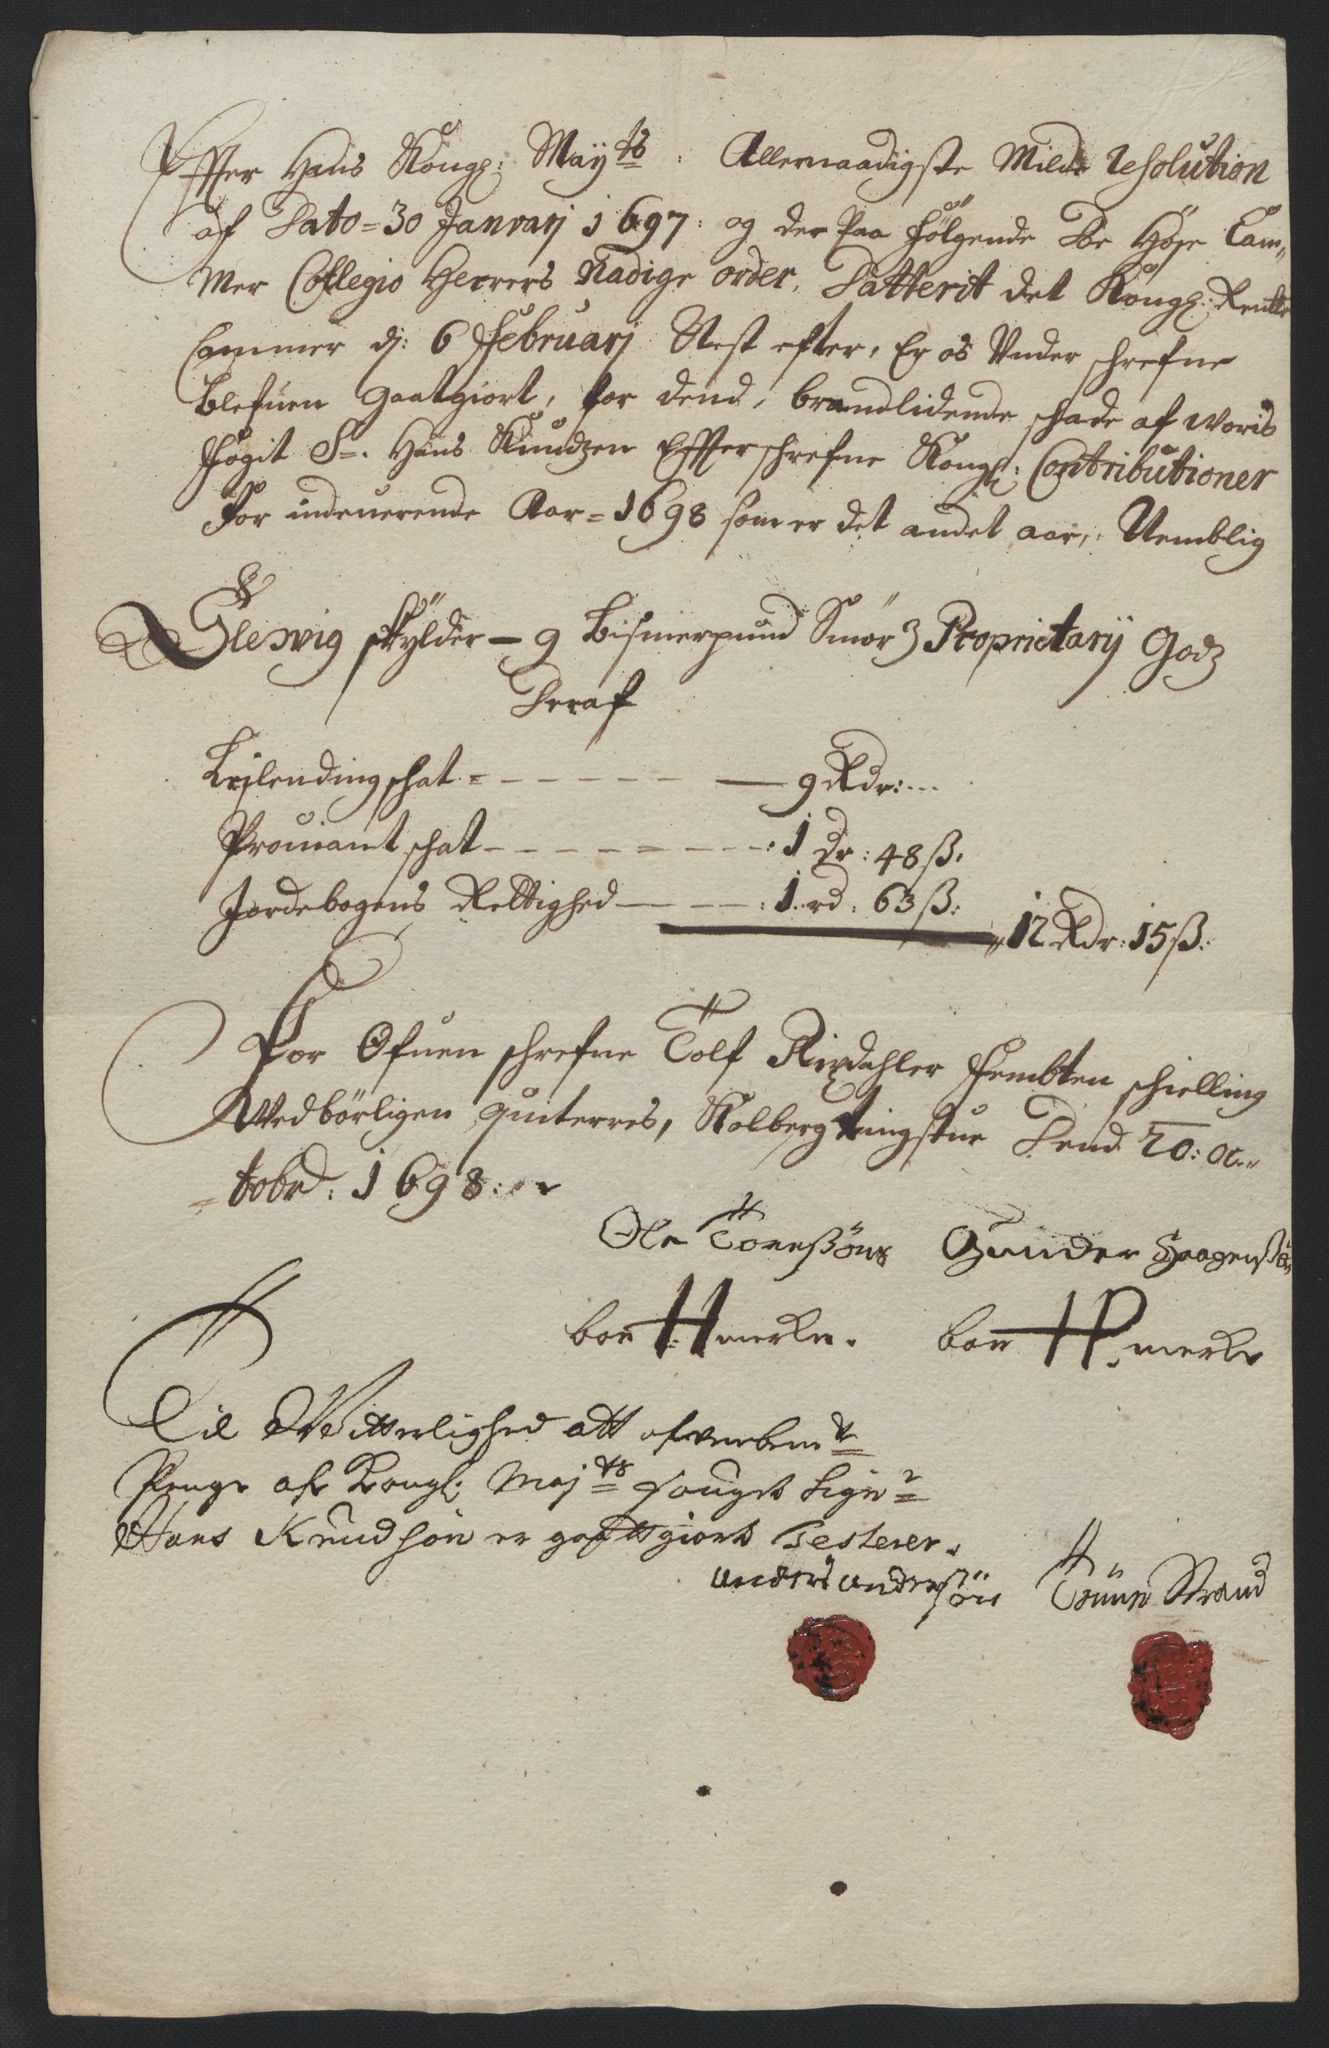 Effter Hans Kongl: Maÿts: Allernaadigste Milde Resolution
af Dato = 30 Januarj 1697: og der Paa følgende De Höje Cam„
Mer Collegio Herrers Nadige order, Datterit det Kongl: Rentte
Cammer dj: 6 Februarj Nest efter, Er os Under schrefne
blefuen gaatgiort, for dend, brandlidende schade af woris
fogit Sr. Hans Knudzen Effterschrefne Kongl: Contributioner
For indeuerende Aar = 1698 som er det andet aar, Nemblig
Glesvig skÿlder – 9 Bismerpund Smör 3 Proprietarij Godz
Deraf
Leÿlending schat = – – – – – – 9 Rdr: . . .
Prouiant schat – – – – – – – : 1 Dr: 48 ß.
Jordebogens Rettighed – – – : 1. rd: 63 ß:
„12 Rdr: 15 ß.
For Ofuen schrefne Tolf Rixdahler Fembten schielling
Wedbörligen quiterres, Kolberg tingstue Dend 20: Oc„
= tobrd: 1698:
Ole Toreßöns Gunder Haagenßön
boe H merke. boe HP merke
Til Witterlighed att ofverbemte
Penge af Kongl: Majts fouget Sigr
Hans Knudsön er gaattgiort Testerer.
Anders Andersön Trüün Strand